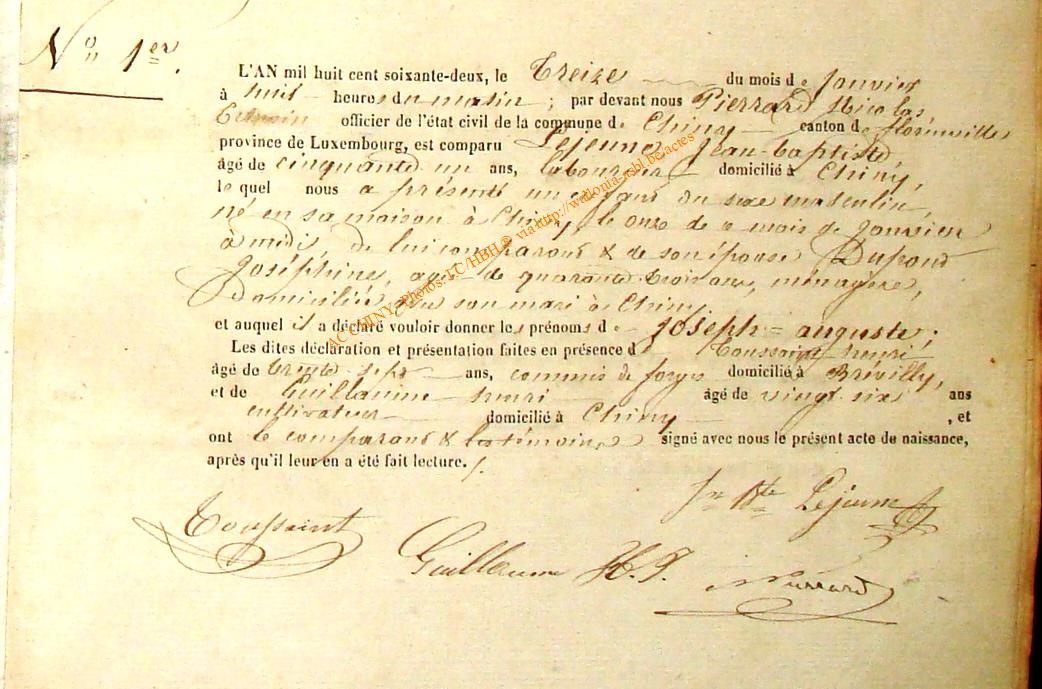 N° 1er.
L'AN mil huit cent soixante-deux, le Treize du mois de Janvier
à huit heures du matin ; par devant nous Pierrard Nicolas
officier de l'état civil de la commune de Chiny canton de florenville
province de Luxembourg, est comparu Lejeune Jean-baptiste,
âgé de cinquante un ans, laboureur domicilié à Chiny,
lequel nous a présenté un enfant du sexe masculin,
né en sa maison à Chiny, le onze de ce mois de Janvier
à midi, de lui comparant & de son épouse Dupont
Joséphine, agée de quarante trois ans, ménagère,
domiciliée avec son mari à Chiny
et auquel il a déclaré vouloir donner les prénoms de Joseph = auguste ;
Les dites déclaration et présentation faites en présence de Toussaint henri
âgé de trente sept ans, commis de forges domicilié à Brévilly,
et de Guillaume henri âgé de vingt six ans
cultivateur domicilié à Chiny , et
ont le comparant & les témoins signé avec nous le présent acte de naissance,
après qu'il leur en a été fait lecture.
Jn Bte Lejeune
Toussaint
Guillaume H. J.
N Pierrard
AC CHINY - Photos: LC/HBH® via http://wallonia-asbl.be/actes